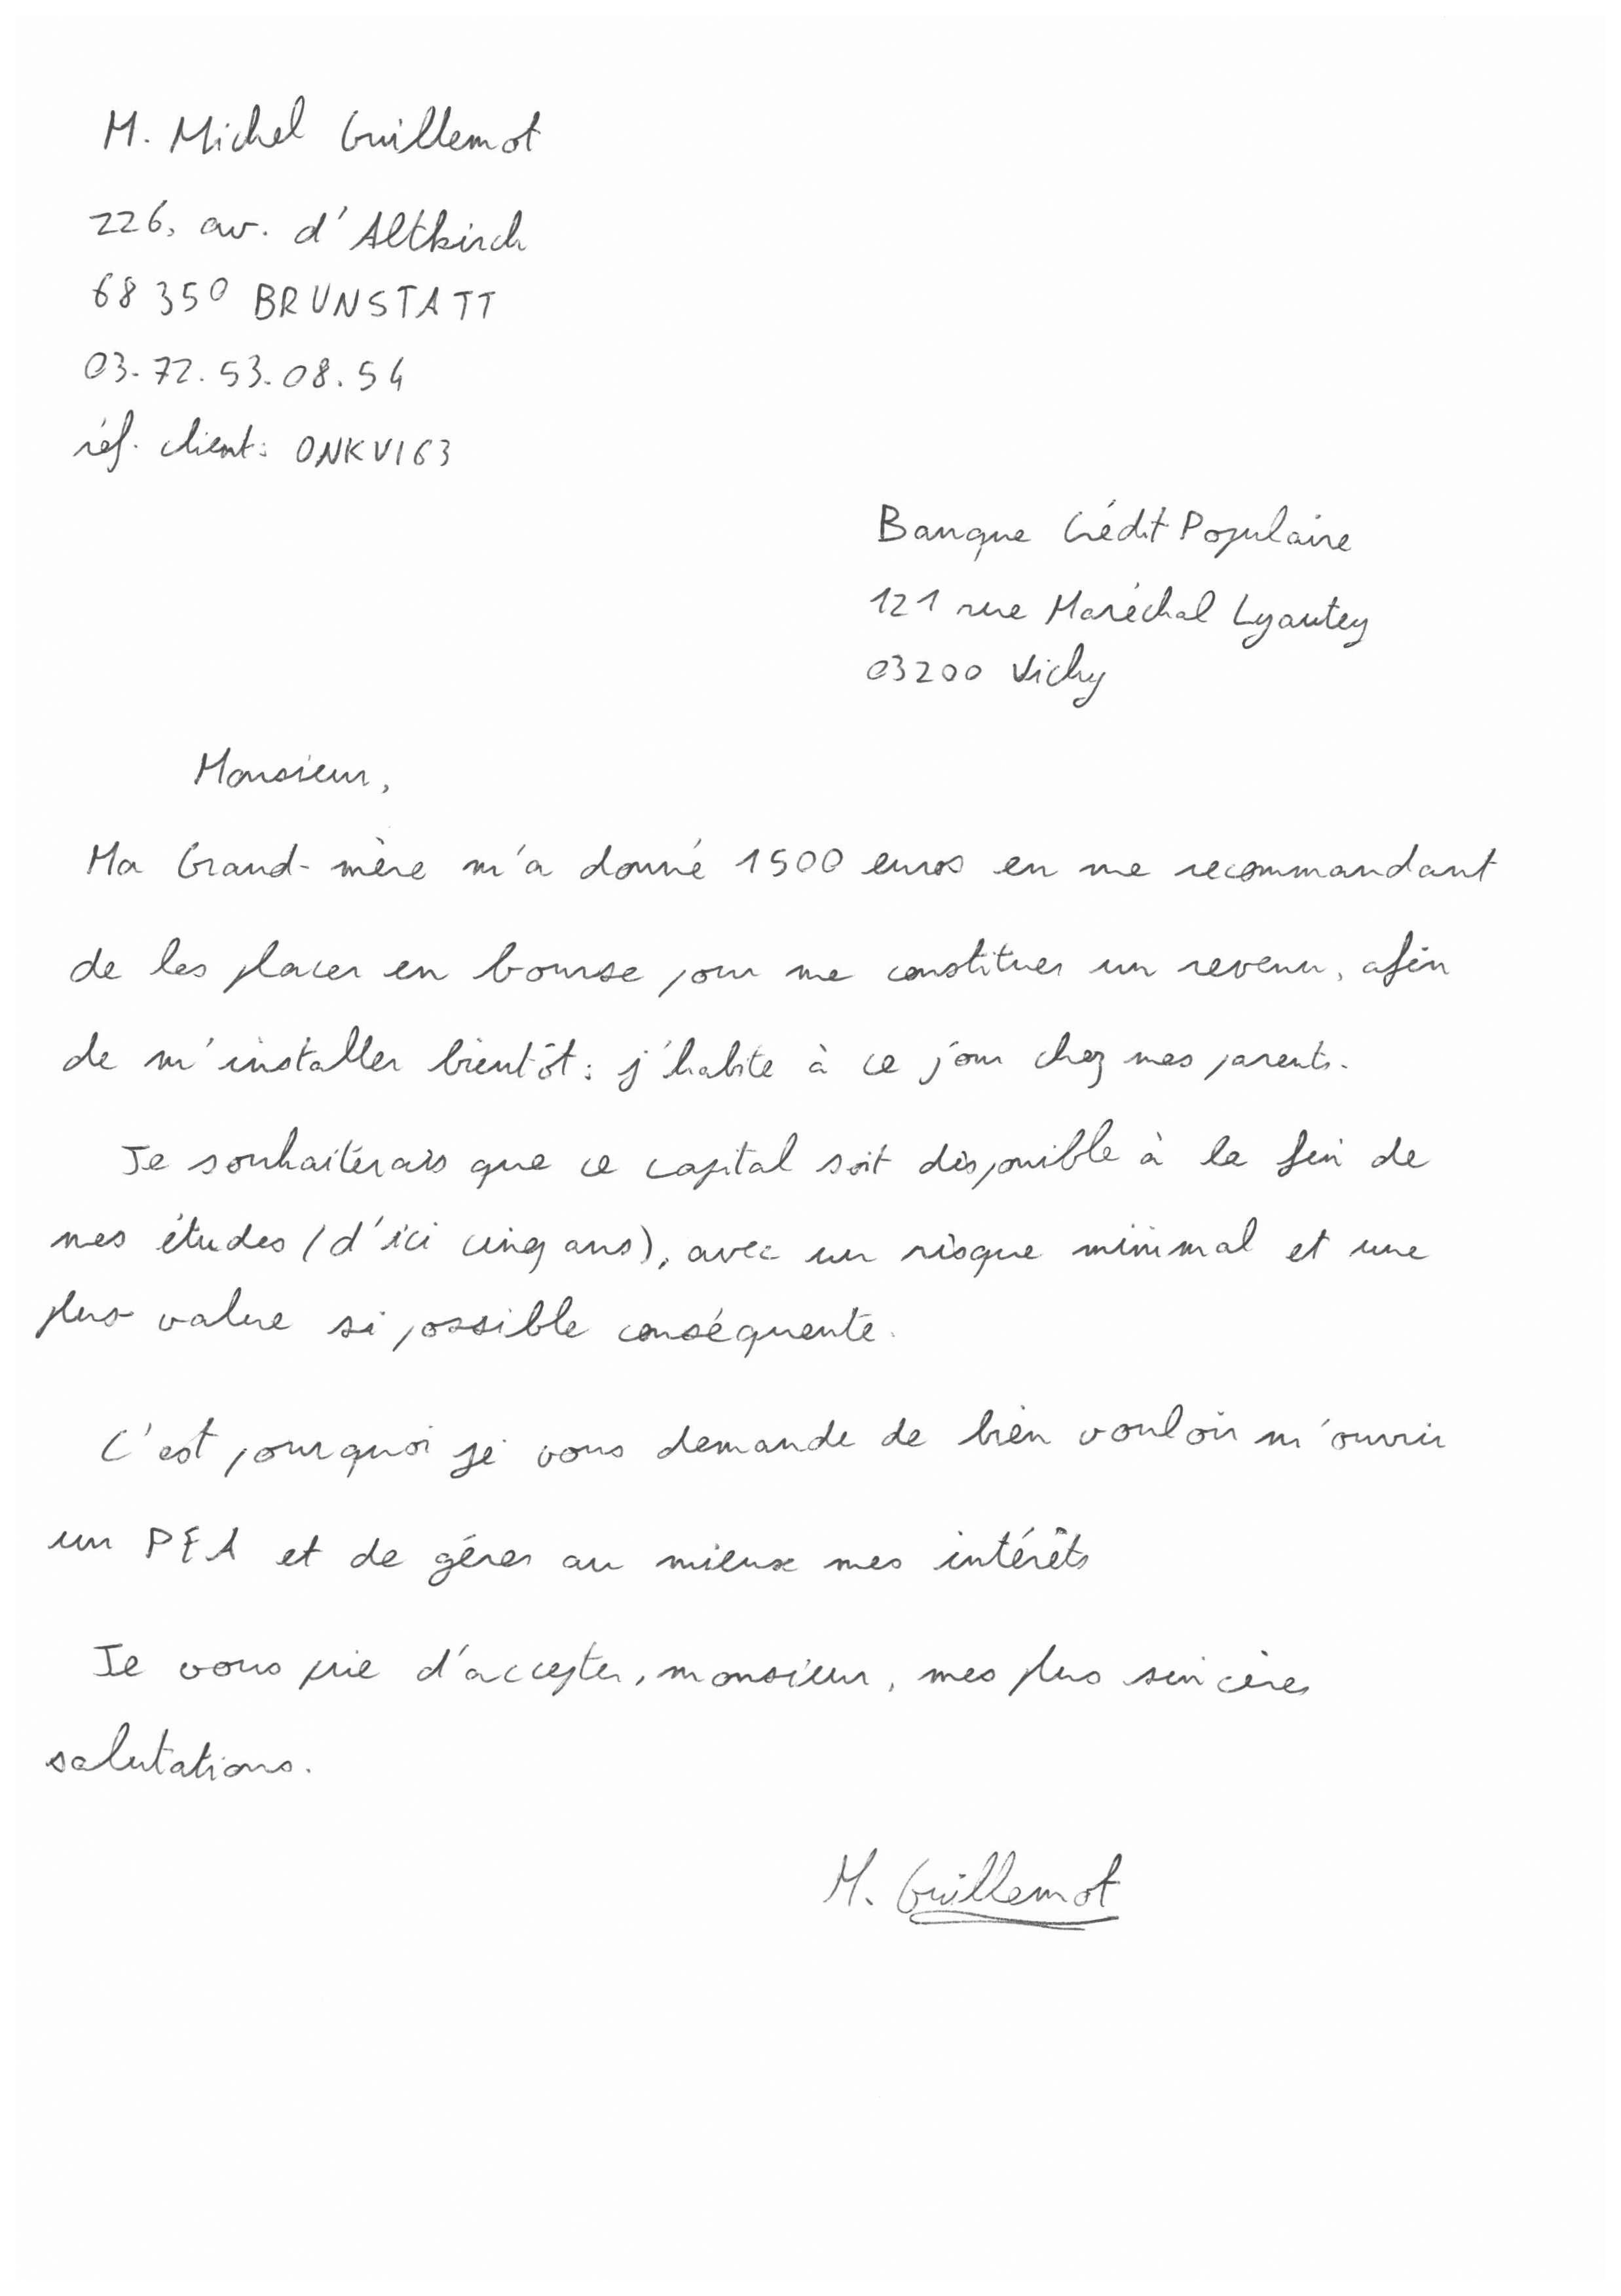 M. Michel Guillemot
226, av. d'Altkirch
68350 BRUNSTATT
03.72.53.08.54
réf. client: ONKVI63
Banque Crédit Populaire
121 rue Maréchal Lyautey
03200 Vichy
Monsieur,
Ma Grand-mère m'a donné 1500 euros en me recommandant
de les placer en bourse pour me constituer un revenu, afin
de m'installer bientôt : j'habite à ce jour chez mes parents.
Je souhaiterais que ce capital soit disponible à la fin de
mes études (d'ici cinq ans), avec un risque minimal et une
plus value si possible conséquente.
C'est pourquoi je vous demande de bien vouloir m'ouvrir
un PEA et de gérer au mieux mes intérêts
Je vous prie d'accepter, monsieur, mes plus sincères
salutations.
M. Guillemot